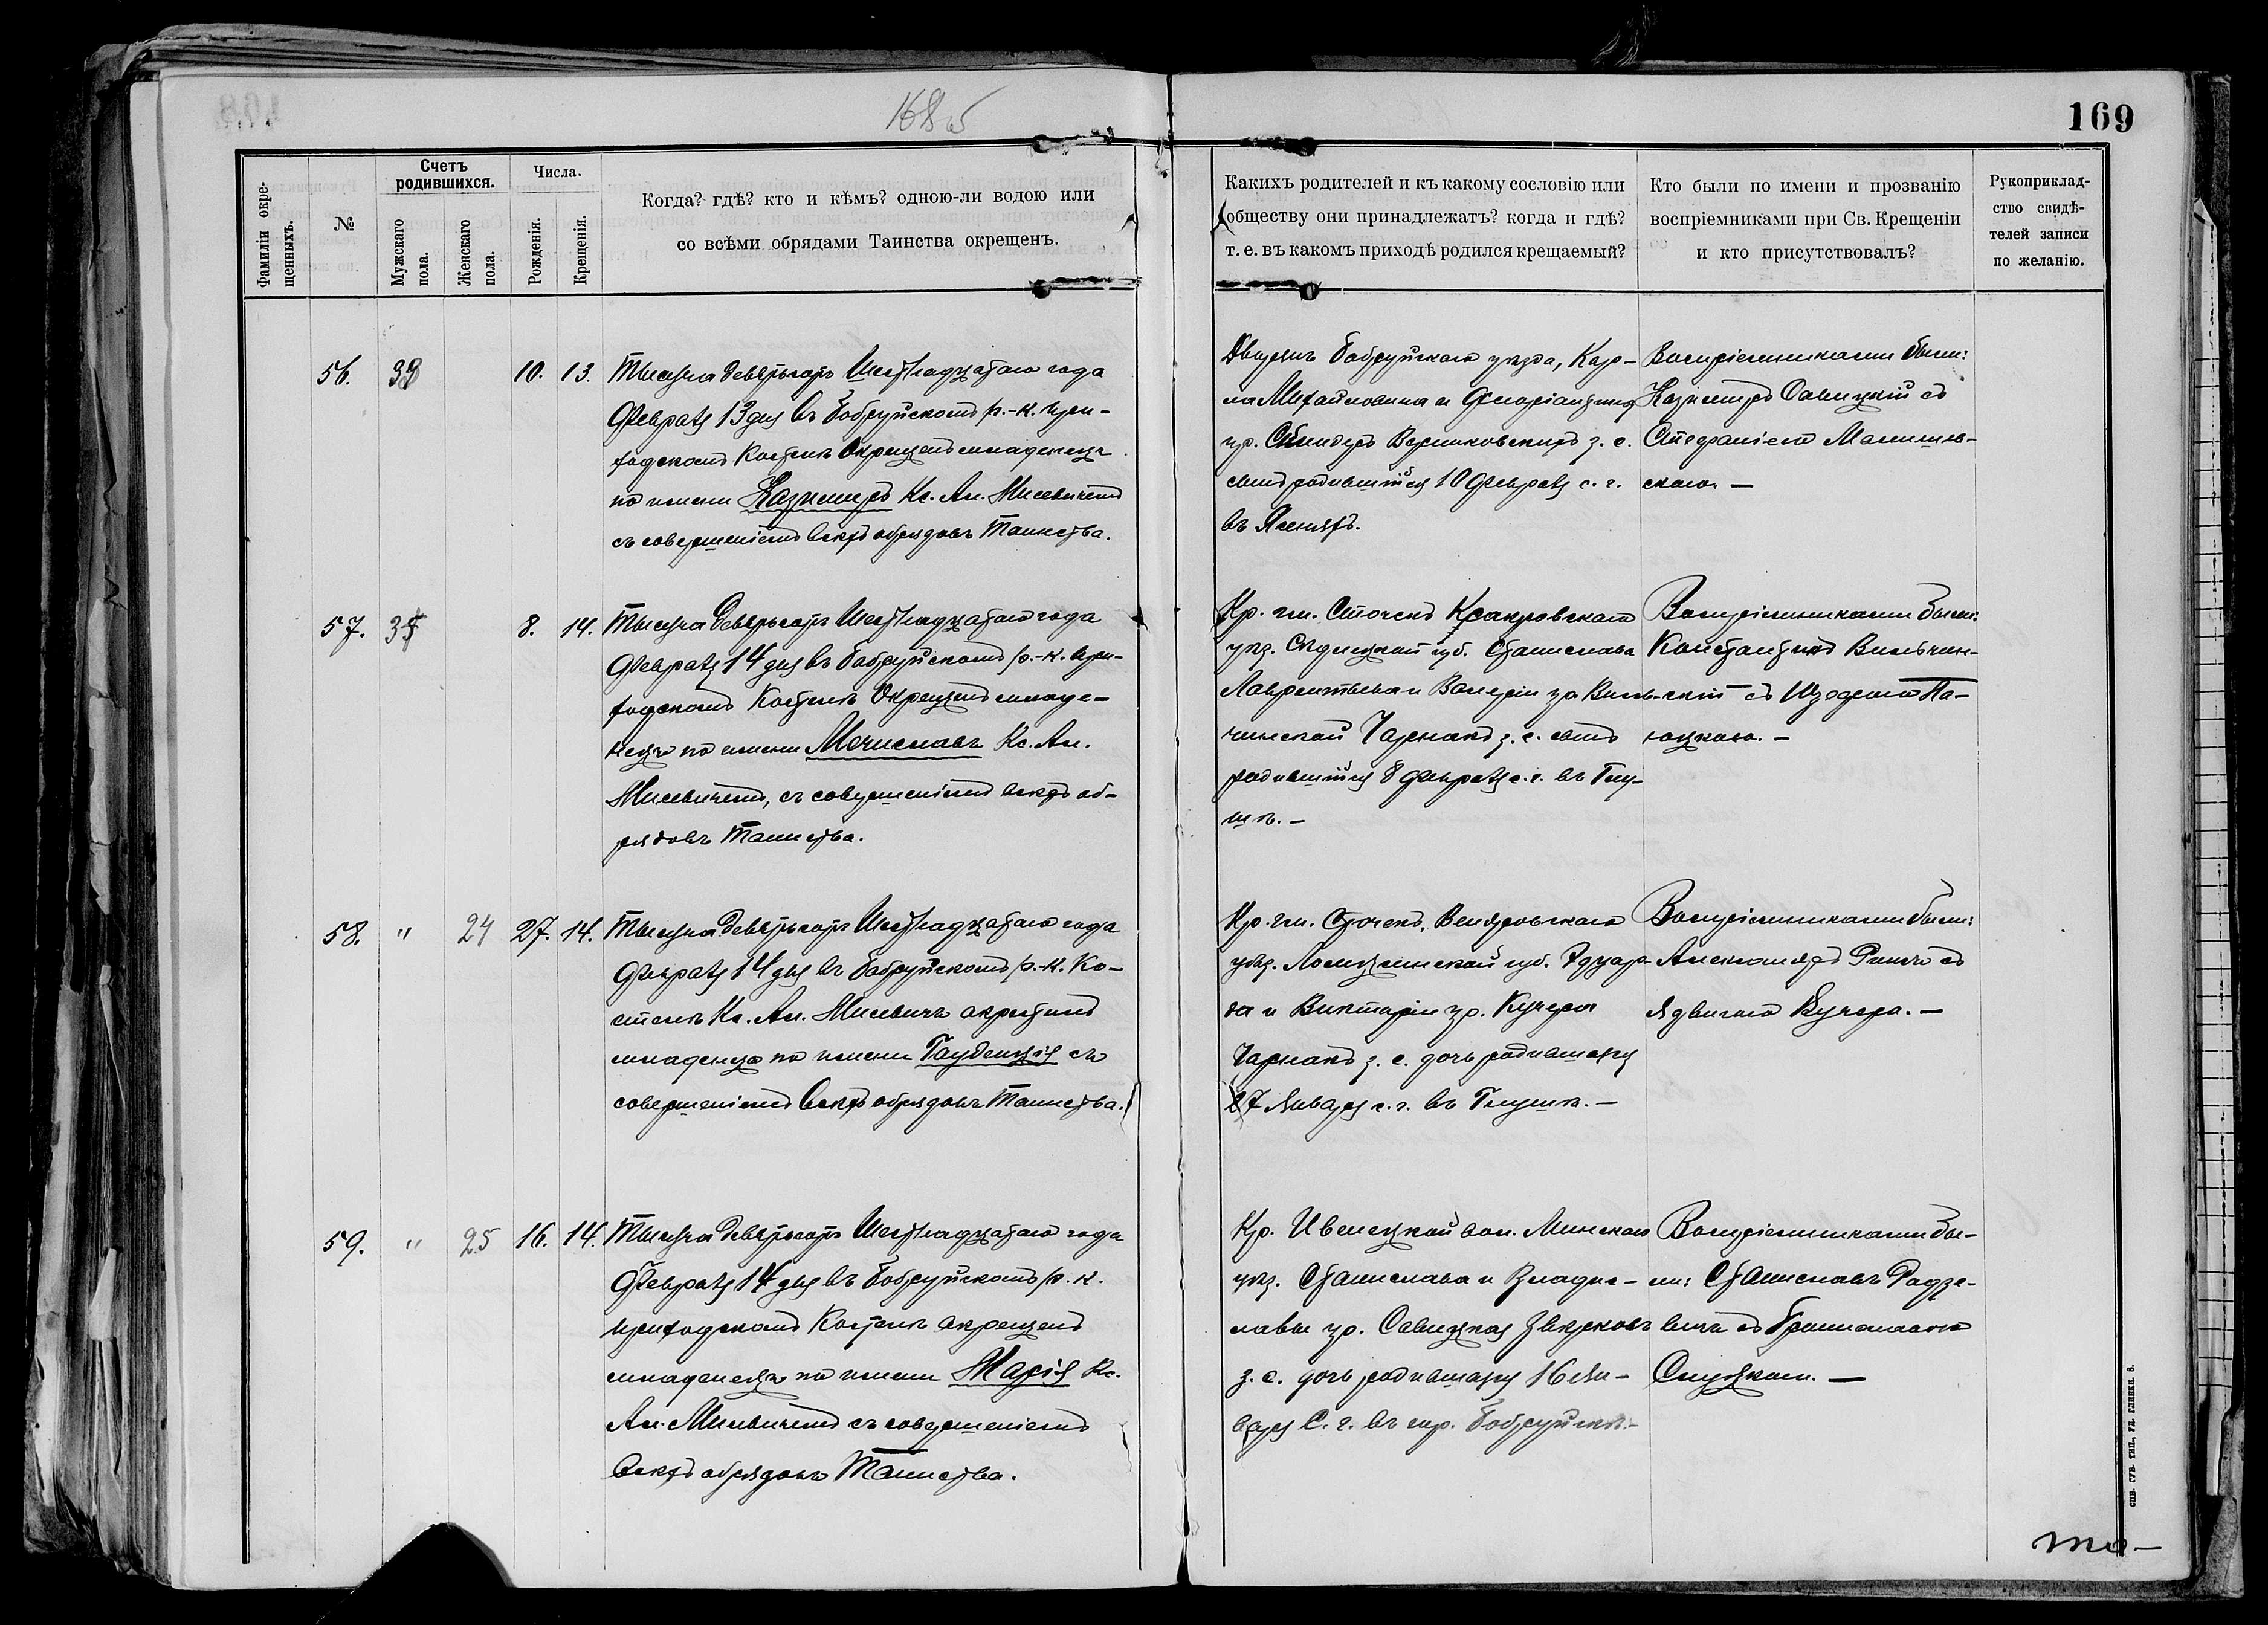 168 об
169
Фамиліи окре-
щенныхъ.
№
Счетъ
родившихся.
Мужскаго
пола.
Женскаго
пола.
Числа.
Рожденія.
Крещенія.
Когда? гдѣ? кто и кѣмъ? одною-ли водою или
со всѣми обрядами Таинства окрещенъ.
Какихъ родителей и къ какому сословію или
обществу они принадлежатъ? когда и гдѣ?
т. е. въ какомъ приходѣ родился крещаемый?
Кто были по имени и прозванію
воспріемниками при Св. Крещеніи
и кто присутствовалъ?
Рукоприклад-
ство свидѣ-
телей записи
по желанію.
56.
10. 13.
Тысяча девятьсотъ Шестнадцатаго года
Февраля 13 дня въ Бобруйскомъ р.-к. при-
ходскомъ Костелѣ Окрещенъ младенецъ
по имени Казимиръ Кс. Ал. Мисевичемъ
съ совершеніемъ всѣхъ обрядовъ Таинства.
Дворянъ Бобруйскаго уѣзда, Кар-
ла Михайловича и
ур. з. с.
сынъ родившійся 10 Февраля с. г.
въ Ясеняхъ.
Воспріемниками были:
Казимиръ Савицкій съ
Стефаніею Малишев-
скою. —
57.
8. 14.
Тысяча девятьсотъ Шестнадцатаго года
Февраля 14 дня въ Бобруйскомъ р.-к. при-
ходскомъ Костелѣ Окрещенъ младе-
нецъ по имени Мечиславъ Кс. Ал.
Мисевичемъ, съ совершеніемъ всѣхъ об-
рядовъ Таинства.
Кр. гм. Сточекъ
уѣз. Сѣдлецкой губ. Станислава
Лаврентьева и Валеріи ур. Виль-
чинской Чарнакъ з. с. сынъ
родившійся 8 Февраля с. г. въ Глу-
шѣ. —
Воспріемниками были:
Константинъ Вильчин-
скій съ Изодорою Па-
люцкою. —
58. " 24 27. 14.
Тысяча девятьсотъ Шестнадцатаго года
Февраля 14 дня въ Бобруйскомъ р.-к. Ко-
стелѣ Кс. Ал. Мисевичъ окрестилъ
младенца по имени Гауденція съ
совершеніемъ Всѣхъ обрядовъ Таинства.
Кр. гм. Сточекъ, Венгровскаго
уѣз. Ломжинской губ. Эдуар-
да и Викторіи ур. Кучера
Чарнакъ з. с. дочь родившаяся
27 Января с. г. въ Глушѣ. —
Воспріемниками были:
Александръ съ
Ядвигою Кучера. —
59. " 25 16. 14.
Тысяча девятьсотъ Шестнадцатаго года
Февраля 14 дня въ Бобруйскомъ р. к.
приходскомъ Костелѣ окрещенъ
младенецъ по имени Марія Кс.
Ал. Мисевичемъ съ совершеніемъ
Всѣхъ обрядовъ Таинства.
Кр. Ивенецкой вол. Минскаго
уѣз. Станислава и Владис-
лавы ур. Савицкая
з. с. дочь родившаяся 16 Ян-
варя С. г. въ гор. Бобруйскѣ. —
Воспріемниками бы-
ли: Станиславъ Радзе-
вичъ съ
Слуцкою. —
СПБ. ГУБ. ТИП., УЛ. ГЛИНКИ, 8.